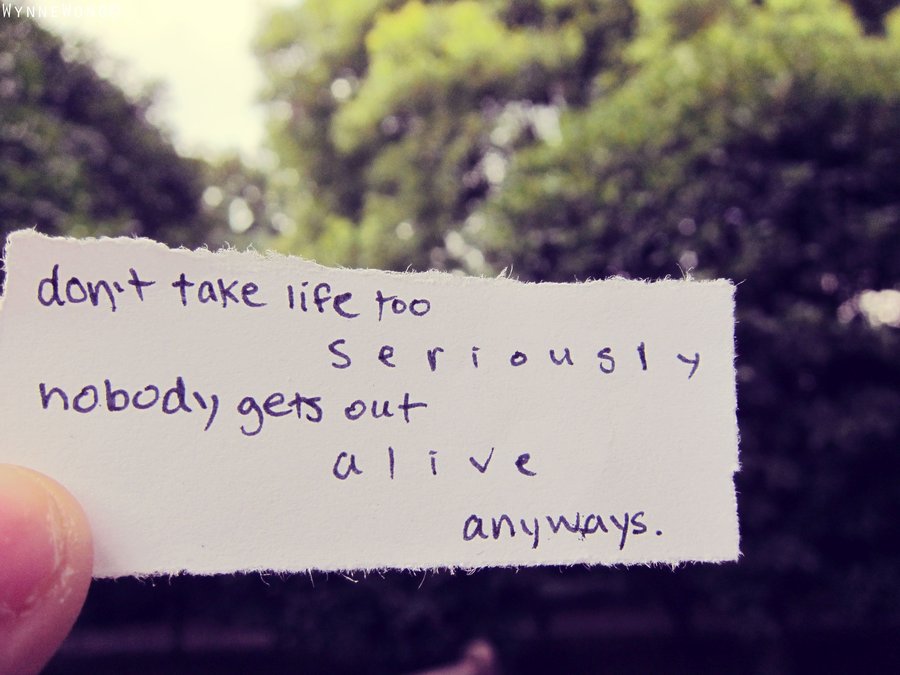 don't take life too
seriously
nobody gets out
alive
anyways.